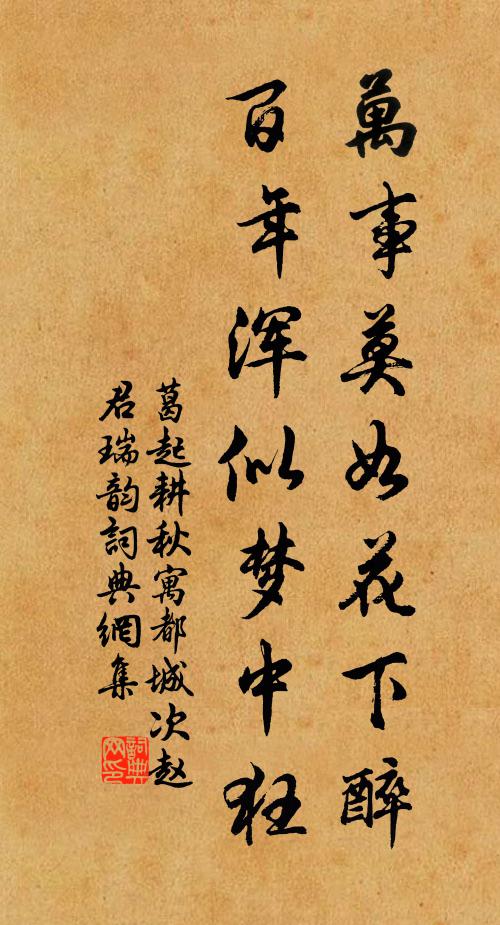 萬事莫如花下醉
百年浑似梦中狂
葛起耕秋寓都城次赵
君瑞韵詞典網集
詞典
网印